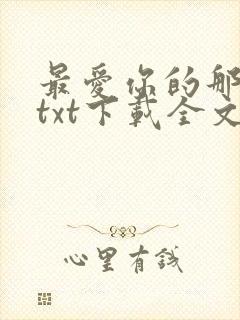 最爱你的那
txt下载全文
心里有钱